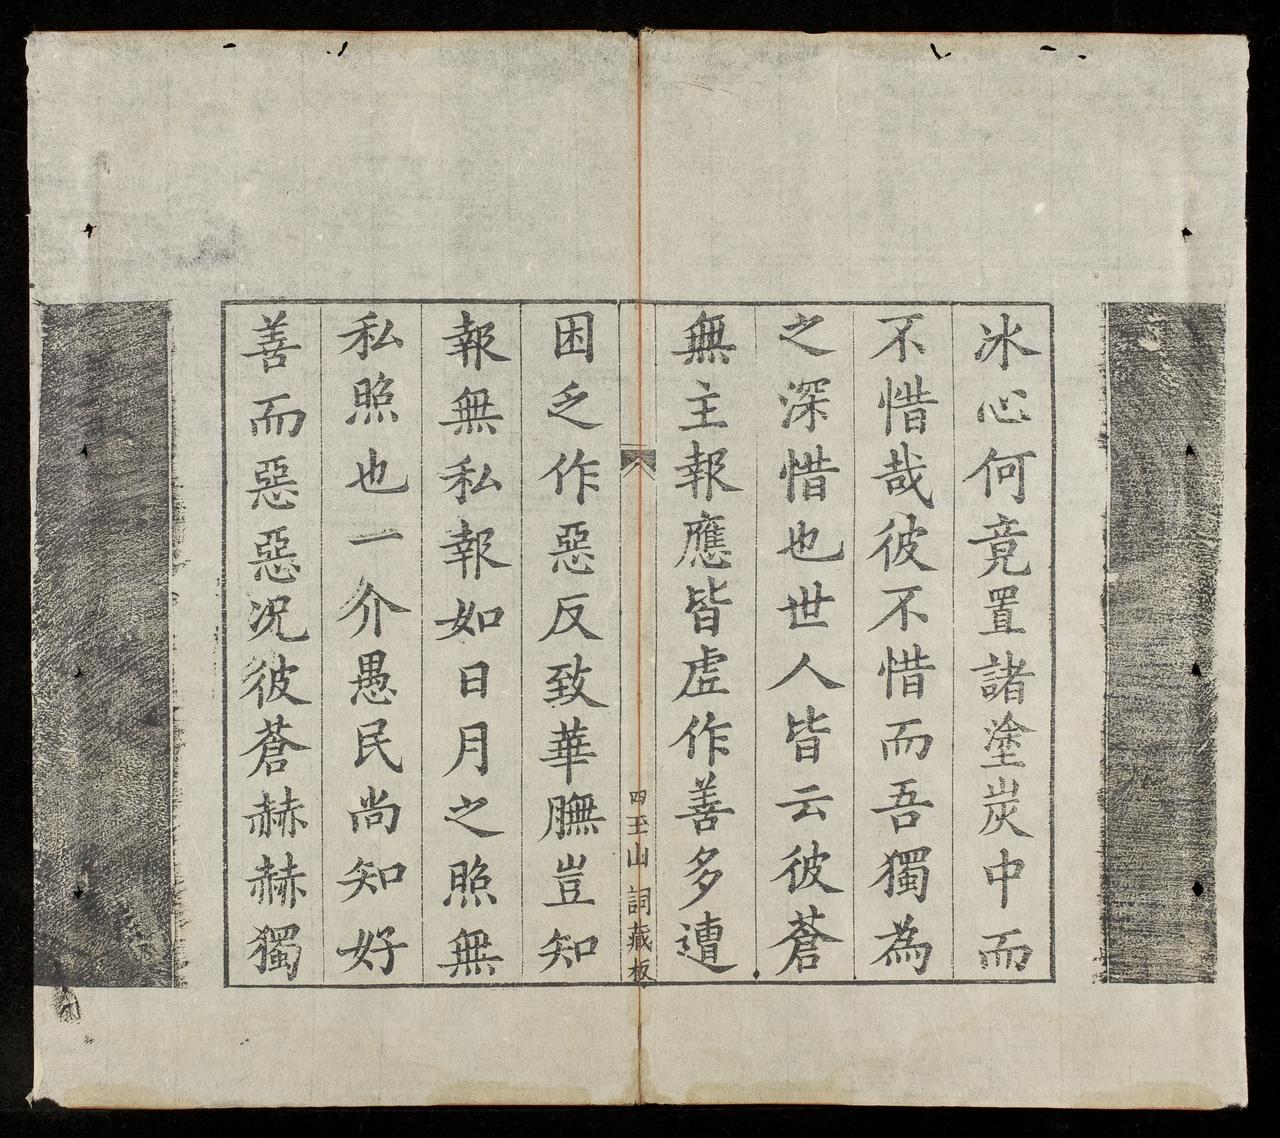 冰心何竟置諸塗炭中而
不惜哉彼不惜而吾獨為
之深惜也世人皆云彼蒼
無主報應皆虛作善多遭
四至山詞藏板
困乏作惡反致華膴豈知
報無私報如日月之照無
私照也一介愚民尚知好
善而惡惡况彼蒼赫赫獨